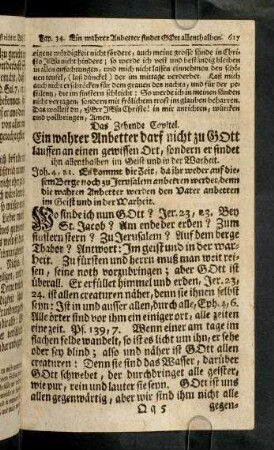 Cap. 34. Ein wahrer Anbeter findet GOtt allenthalben. 617
eigene würdigkeit nicht hindere, auch meine grosse sünde in Chri-
sto JEsu nicht hindere; so werde ich vest und beständig bleiben
in allen anfechtungen, und mich nicht lassen einnehmen den schö-
nen teufel, (das dünckel) der im mittage verderbet. Laß mich
auch nicht erschröcken für dem grauen des nachts, und für der pe-
stilentz, die im finstern schleicht: So werde ich in meinen sünden
nicht verzagen, sondern mit frölichem trost im glauben beharren.
Das wollest du, HErr JEsu Christe! in mir anrichten, würcken
und vollbringen, Amen.
Das Zehende Capitel.
Ein wahrer Anbeter darf nicht zu GOtt
lauffen an einen gewissen Ort, sondern er findet
ihn allenthalben im Geist und in der Warheit.
Joh. 4, 21. Es kommt die Zeit, da ihr weder auf die-
sem Berge noch zu Jerusalem anbeten werdet, denn
die wahren Anbeter werden den Vater anbeten
im Geist und in der Warheit.
Wo finde ich nun GOtt? Jer. 23, 23. Bey
St. Jacob? Am ende der erden? Zum
finstern stern? Zu Jerusalem? Auf dem berge
Thabor? Antwort: Im geist und in der war-
heit. Zu fürsten und herrn muß man weit rei-
sen, seine noth vorzubringen; aber GOtt ist
überall. Er erfüllet himmel und erden, Jer. 23,
24. ist allen creaturen näher, denn sie ihnen selbst
seyn: Ist in und ausser allen, durch alle, Eph. 4, 6.
Alle örter sind vor ihm ein einiger ort, alle zeiten
eine zeit. Ps. 139, 7. Wenn einer am tage im
flachen felde wandelt, so ist es licht um ihn, er sehe
oder sey blind; also und näher ist GOtt allen
creaturen: Denn sie sind das Wasser, darüber
GOtt schwebet, der durchdringet alle geister,
wie pur, rein und lauter sie seyn. GOtt ist uns
allen gegenwärtig, aber wir sind ihm nicht alle
Qq 5 gegen-